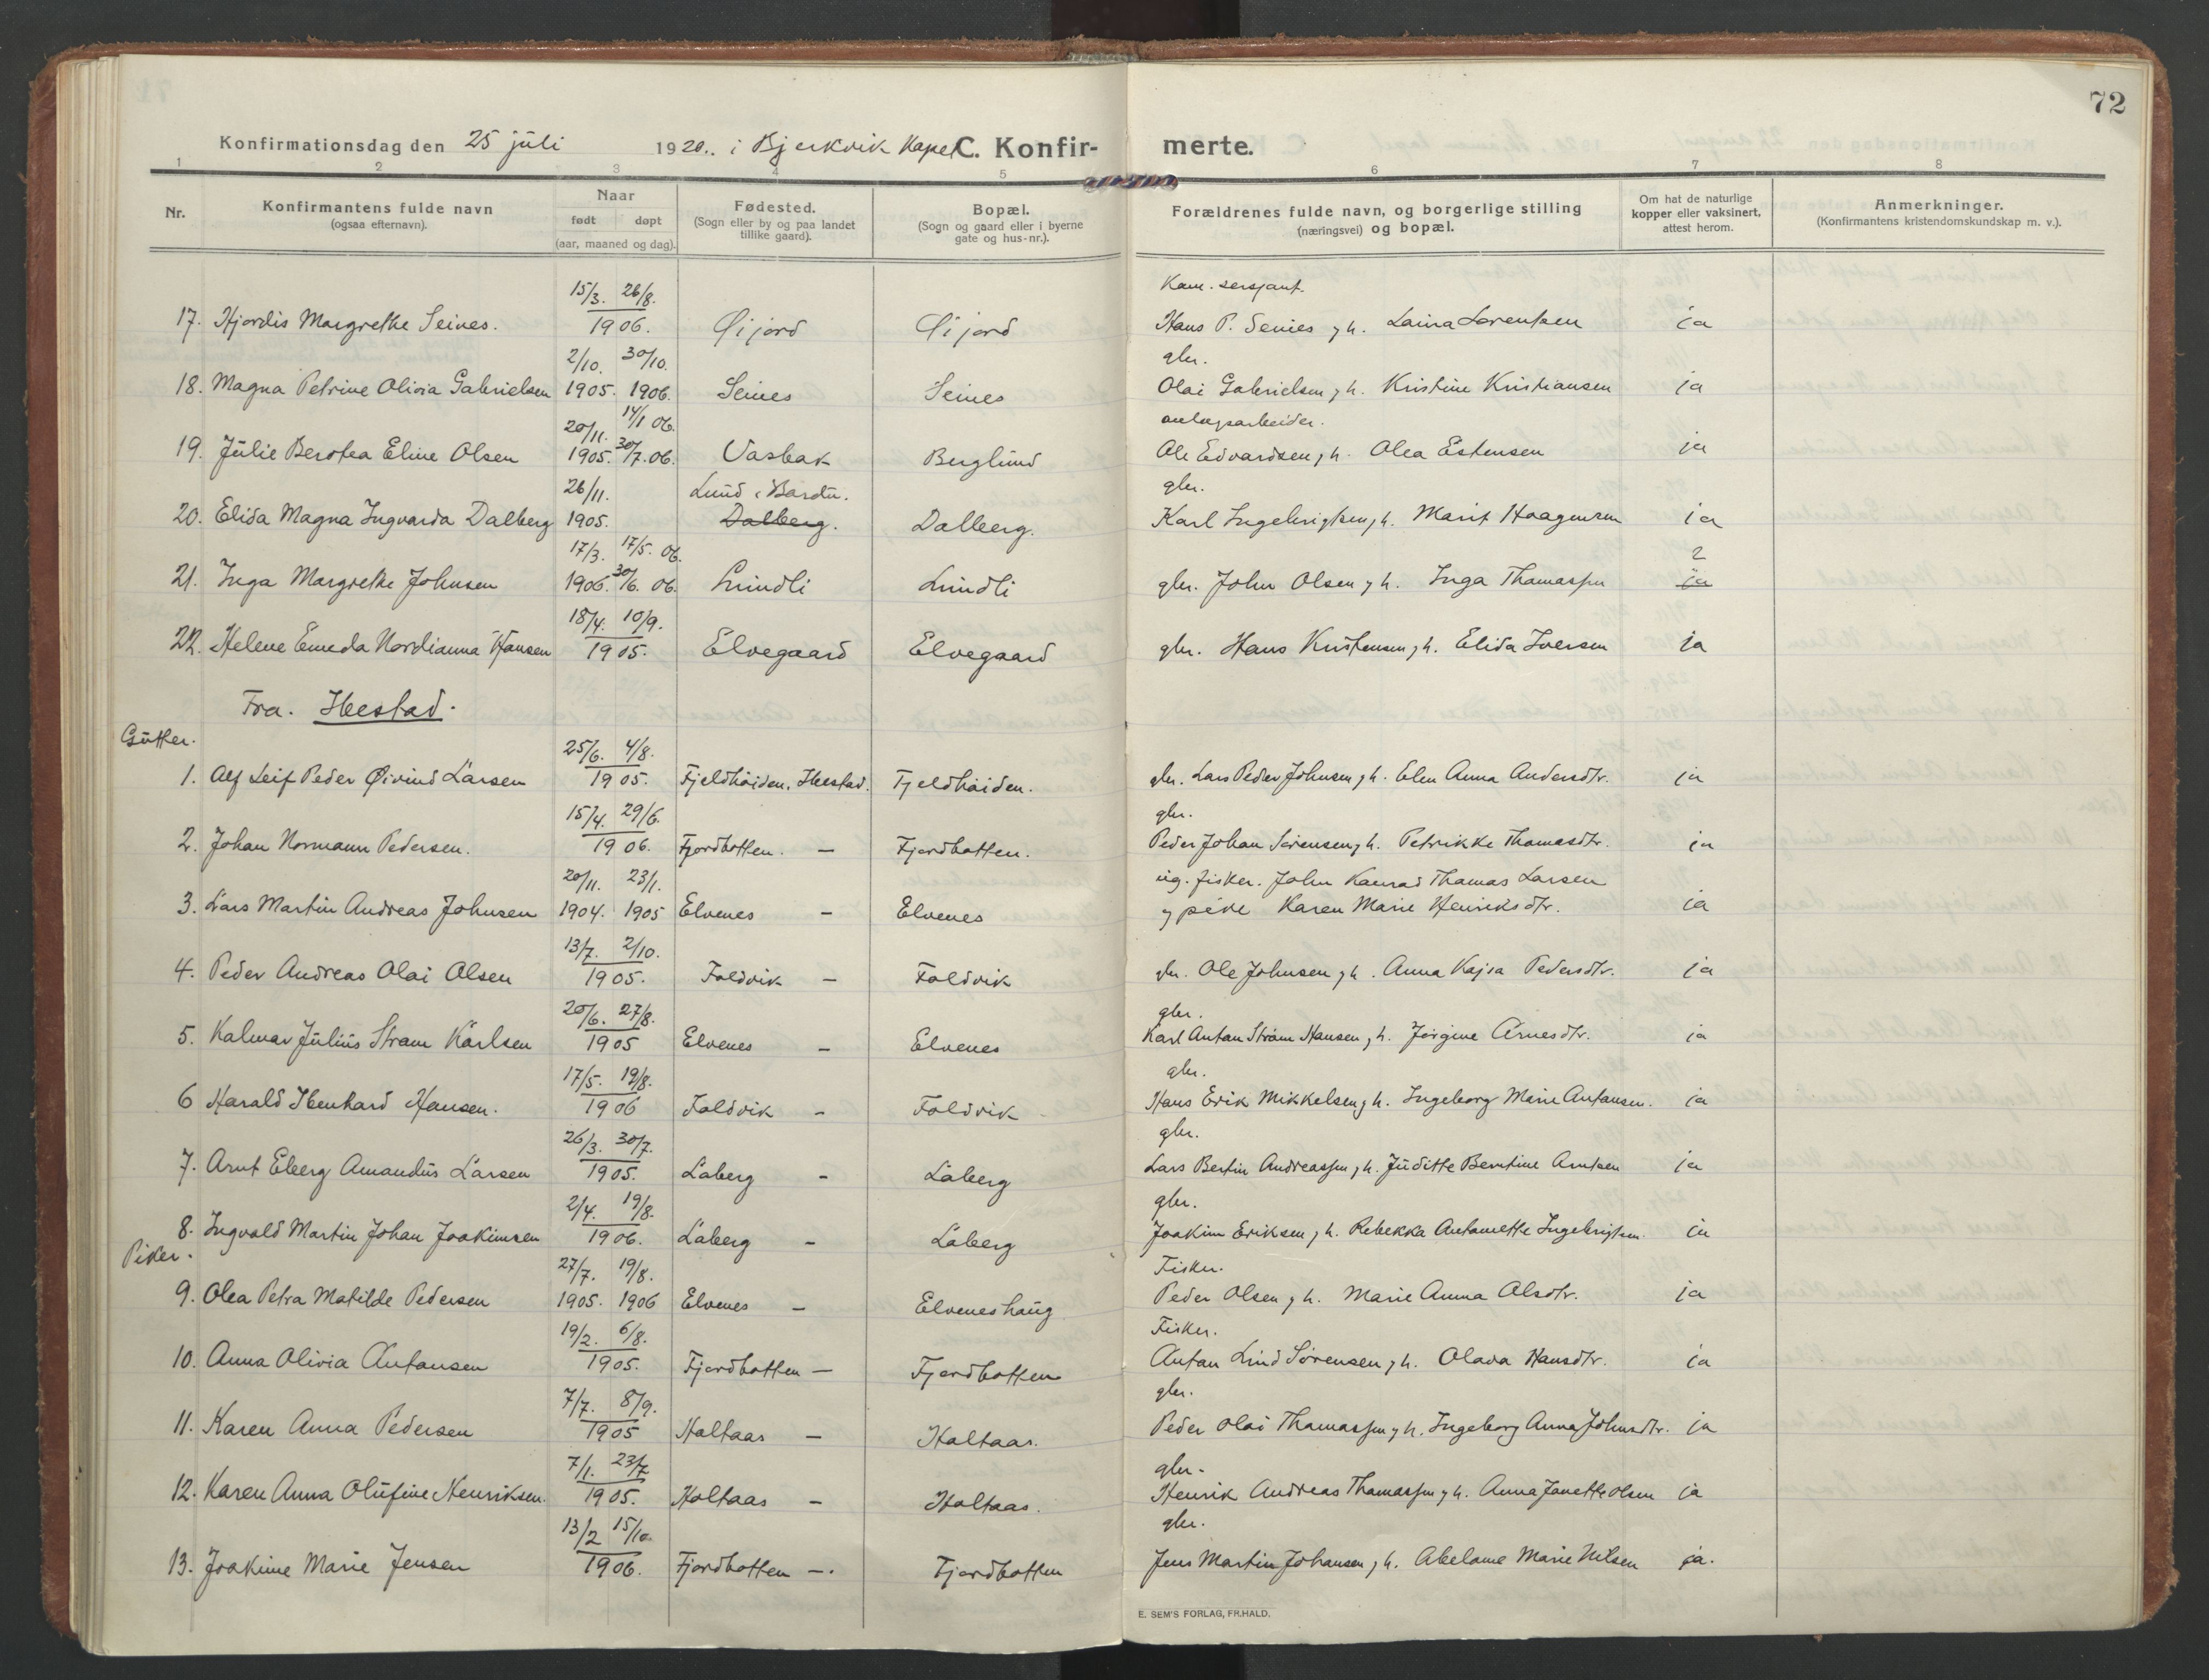 72
Konfirmationsdag den 25 juli 1920. i Bjerkvik Kapel C. Konfir- merte.
1 2 3 4 5 6 7 8
Nr.
Konfirmantens fulde navn
(ogsaa efternavn).
Naar
født døpt
(aar, maaned og dag).
Fødested.
(Sogn eller by og paa landet
tillike gaard).
Bopæl.
(Sogn og gaard eller i byerne
gate og hus-nr.).
Forældrenes fulde navn, og borgerlige stilling
(næringsvei) og bopæl.
Om hat de naturlige
kopper eller vaksinert,
attest herom.
Anmerkninger.
(Konfirmantens kristendomskundskap m. v.).
15/3. 26/8. Kom. sersjant.
17. Hjordis Margrethe Seines. 1906. Øijord Øijord Hans P. Seines, h. Laina Lorentsen ja
2/10. 30/10. gbr.
18. Magna Petrine Olivia Gabrielsen 1905. 1906. Seines Seines Olai Gabrielsen, h. Kristine Kristiansen ja
20/11. 14/1 06. anlegsarbeider.
19. Julie Berotea Eline Olsen 1905. 30/7. 06. Vasbak Berglund Ole Edvardsen, h. Olea Estensen ja
26/11. Lund i Bardu. gbr.
20. Elida Magna Ingvarda Dalberg 1905. Dalberg. Dalberg. Karl Ingebrigtsen, h. Marit Haagensen ja
17/3. 17/5. 06. 2
21. Inga Margrethe Johnsen 1906. 30/6. 06. Lundli Lundli gbr. John Olsen, h. Inga Thomassen ja
18/4. 10/9.
22. Helene Emeda Nordianna Hansen 1905. Elvegaard Elvegaard gbr. Hans Kristensen, h. Elida Iversen ja
Fra. Ibestad.
Gutter.
25/6. 4/8.
1. Alf Leif Peder Øivind Larsen 1905. Fjeldhøiden, Ibestad. Fjeldhøiden. gbr. Lars Peder Johnsen, h. Elen Anna Andersdtr. ja
15/4. 29/6. gbr.
2. Johan Normann Pedersen. 1906. Fjordbotten. — Fjordbotten. Peder Johan Sørensen, h. Petrikke Thomasdtr. ja
20/11. 23/1. ug. fisker. John Konrad Thomas Larsen
3. Lars Martin Andreas Johnsen 1904. 1905 Elvenes — Elvenes og pike Karen Marie Henriksdtr. ja
13/7. 2/10.
4. Peder Andreas Olai Olsen 1905. Foldvik — Foldvik gbr. Ole Johnsen, h. Anna Kajsa Pedersdtr. ja
20/6. 27/8. gbr.
5. Kalmar Julius Strøm Karlsen 1905 Elvenes — Elvenes Karl Anton Strøm Hansen, h. Jørgine Arnesdtr. ja
17/5. 19/8. gbr.
6 Harald Ibenhard Hansen. 1906 Foldvik — Foldvik Hans Erik Mikkelsen, h. Ingeborg Marie Antonsen. ja
26/3. 30/7. gbr.
7. Arnt Eberg Amandus Larsen 1905. Laberg — Laberg Lars Bertin Andreassen, h. Juditte Berntine Arntsen ja
2/4. 19/8. gbr.
8. Ingvald Martin Johan Joakimsen 1906. Laberg — Laberg Joakim Eriksen, h. Rebekka Antonette Ingebrigtsen. ja
Piker.
27/7. 19/8. Fisker.
9. Olea Petra Matilde Pedersen 1905. 1906 Elvenes — Elveneshaug Peder Olsen, h. Marie Anna Olsdtr. ja
19/2. 6/8. Fisker.
10. Anna Olivia Antonsen 1905. Fjordbotten — Fjordbotten Anton Lind Sørensen, h. Olava Hansdtr. ja
7/7. 8/9. gbr.
11. Karen Anna Pedersen 1905 Holtaas — Holtaas. Peder Olai Thomassen, h. Ingeborg Anna Johnsdtr. ja
7/1. 23/7 gbr.
12. Karen Anna Olufine Henriksen. 1905. Holtaas — Holtaas. Henrik Andreas Thomassen, h. Anna Janette Olsen ja
13/2 15/10. gbr.
13. Joakime Marie Jensen 1906. Fjordbotten —. Fjordbotten Jens Martin Johansen, h. Abelone Marie Nilsen ja.
E. SEM'S FORLAG, FR.HALD.